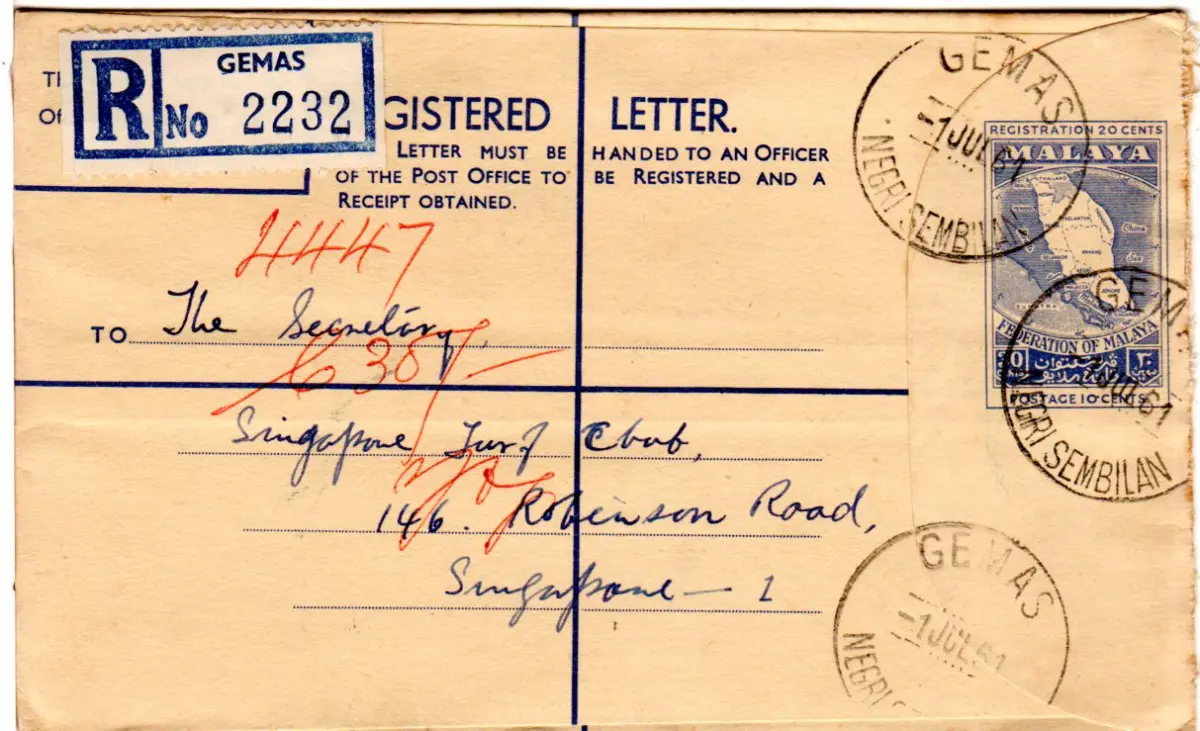 GEMAS
R No 2232
GISTERED LETTER.
LETTER MUST BE HANDED TO AN OFFICER
OF THE POST OFFICE TO BE REGISTERED AND A
RECEIPT OBTAINED.
4447
TO The Secretary,
Singapore Turf Club,
146. Robinson Road,
Singapore - 1
GEMAS
-1 JUL 61
NEGRI SEMBILAN
REGISTRATION 20 CENTS
MALAYA
FEDERATION OF MALAYA
POSTAGE 10 CENTS
GEMAS
JUL 61
NEGRI SEMBILAN
GEMAS
-1 JUL 61
NEGRI